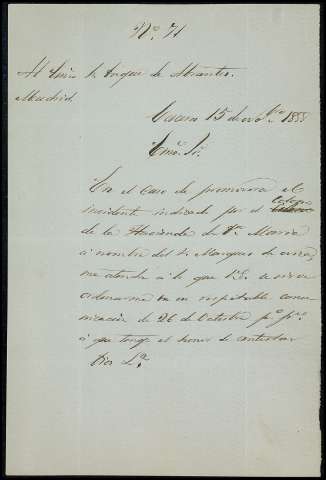 Nº. 71
Al Exmo. Sr. Duque de Abrantes.
Madrid.
15 de nov.bre 1888
Exmo. Sr.
En el caso de promoverse el
incidente indicado por el Colono
de la Hacienda de Sta. Maria
á nombre del Sr. Marques de
me atendré á lo que V.E. se sirve
ordenarme en su respetable comu-
nicacion de 26 de Octubre pº. pdº.
á que tengo el honor de contestar
Dios Lª.